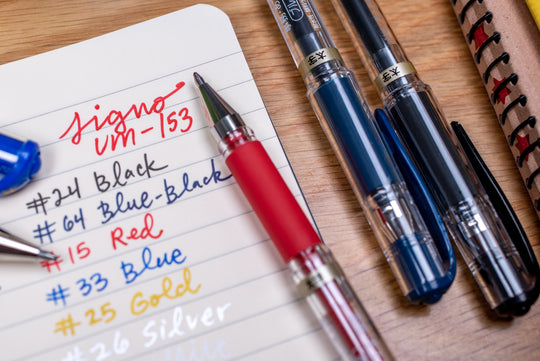 signo
UM-153
#24 Black
#64 Blue-Black
#15 Red
#33 Blue
#25 Gold
#26 Silver
太字
太字